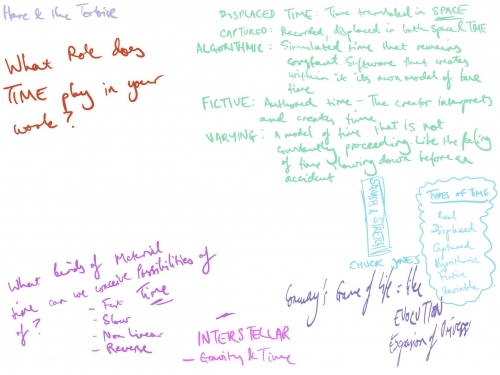 Hare & the Tortoise
What Role does
TIME play in your
work?
DISPLACED TIME: Time translated in SPACE
CAPTURED: Recorded, displaced in both Space & TIME
ALGORITHMIC: Simulated time that remains
constant. Software that creates
within it its own model of
time
FICTIVE: Authored time - The creator interprets
and creates time
VARYING: A model of time that is not
constantly proceeding like the feeling
of time slowing down before an
accident
SQUASH & STRETCH
CHUCK JONES
TYPES OF TIME
Real
Displaced
Captured
Algorithmic
Fictive
Variable
What kinds of Material
time can we conceive Possibilities of
of?
Time
- Fast
- Slow
- Non Linear
- Reverse
INTERSTELLAR
- Gravity & Time
Conway's Game of Life = the
EVOLUTION
Expansion of Universe